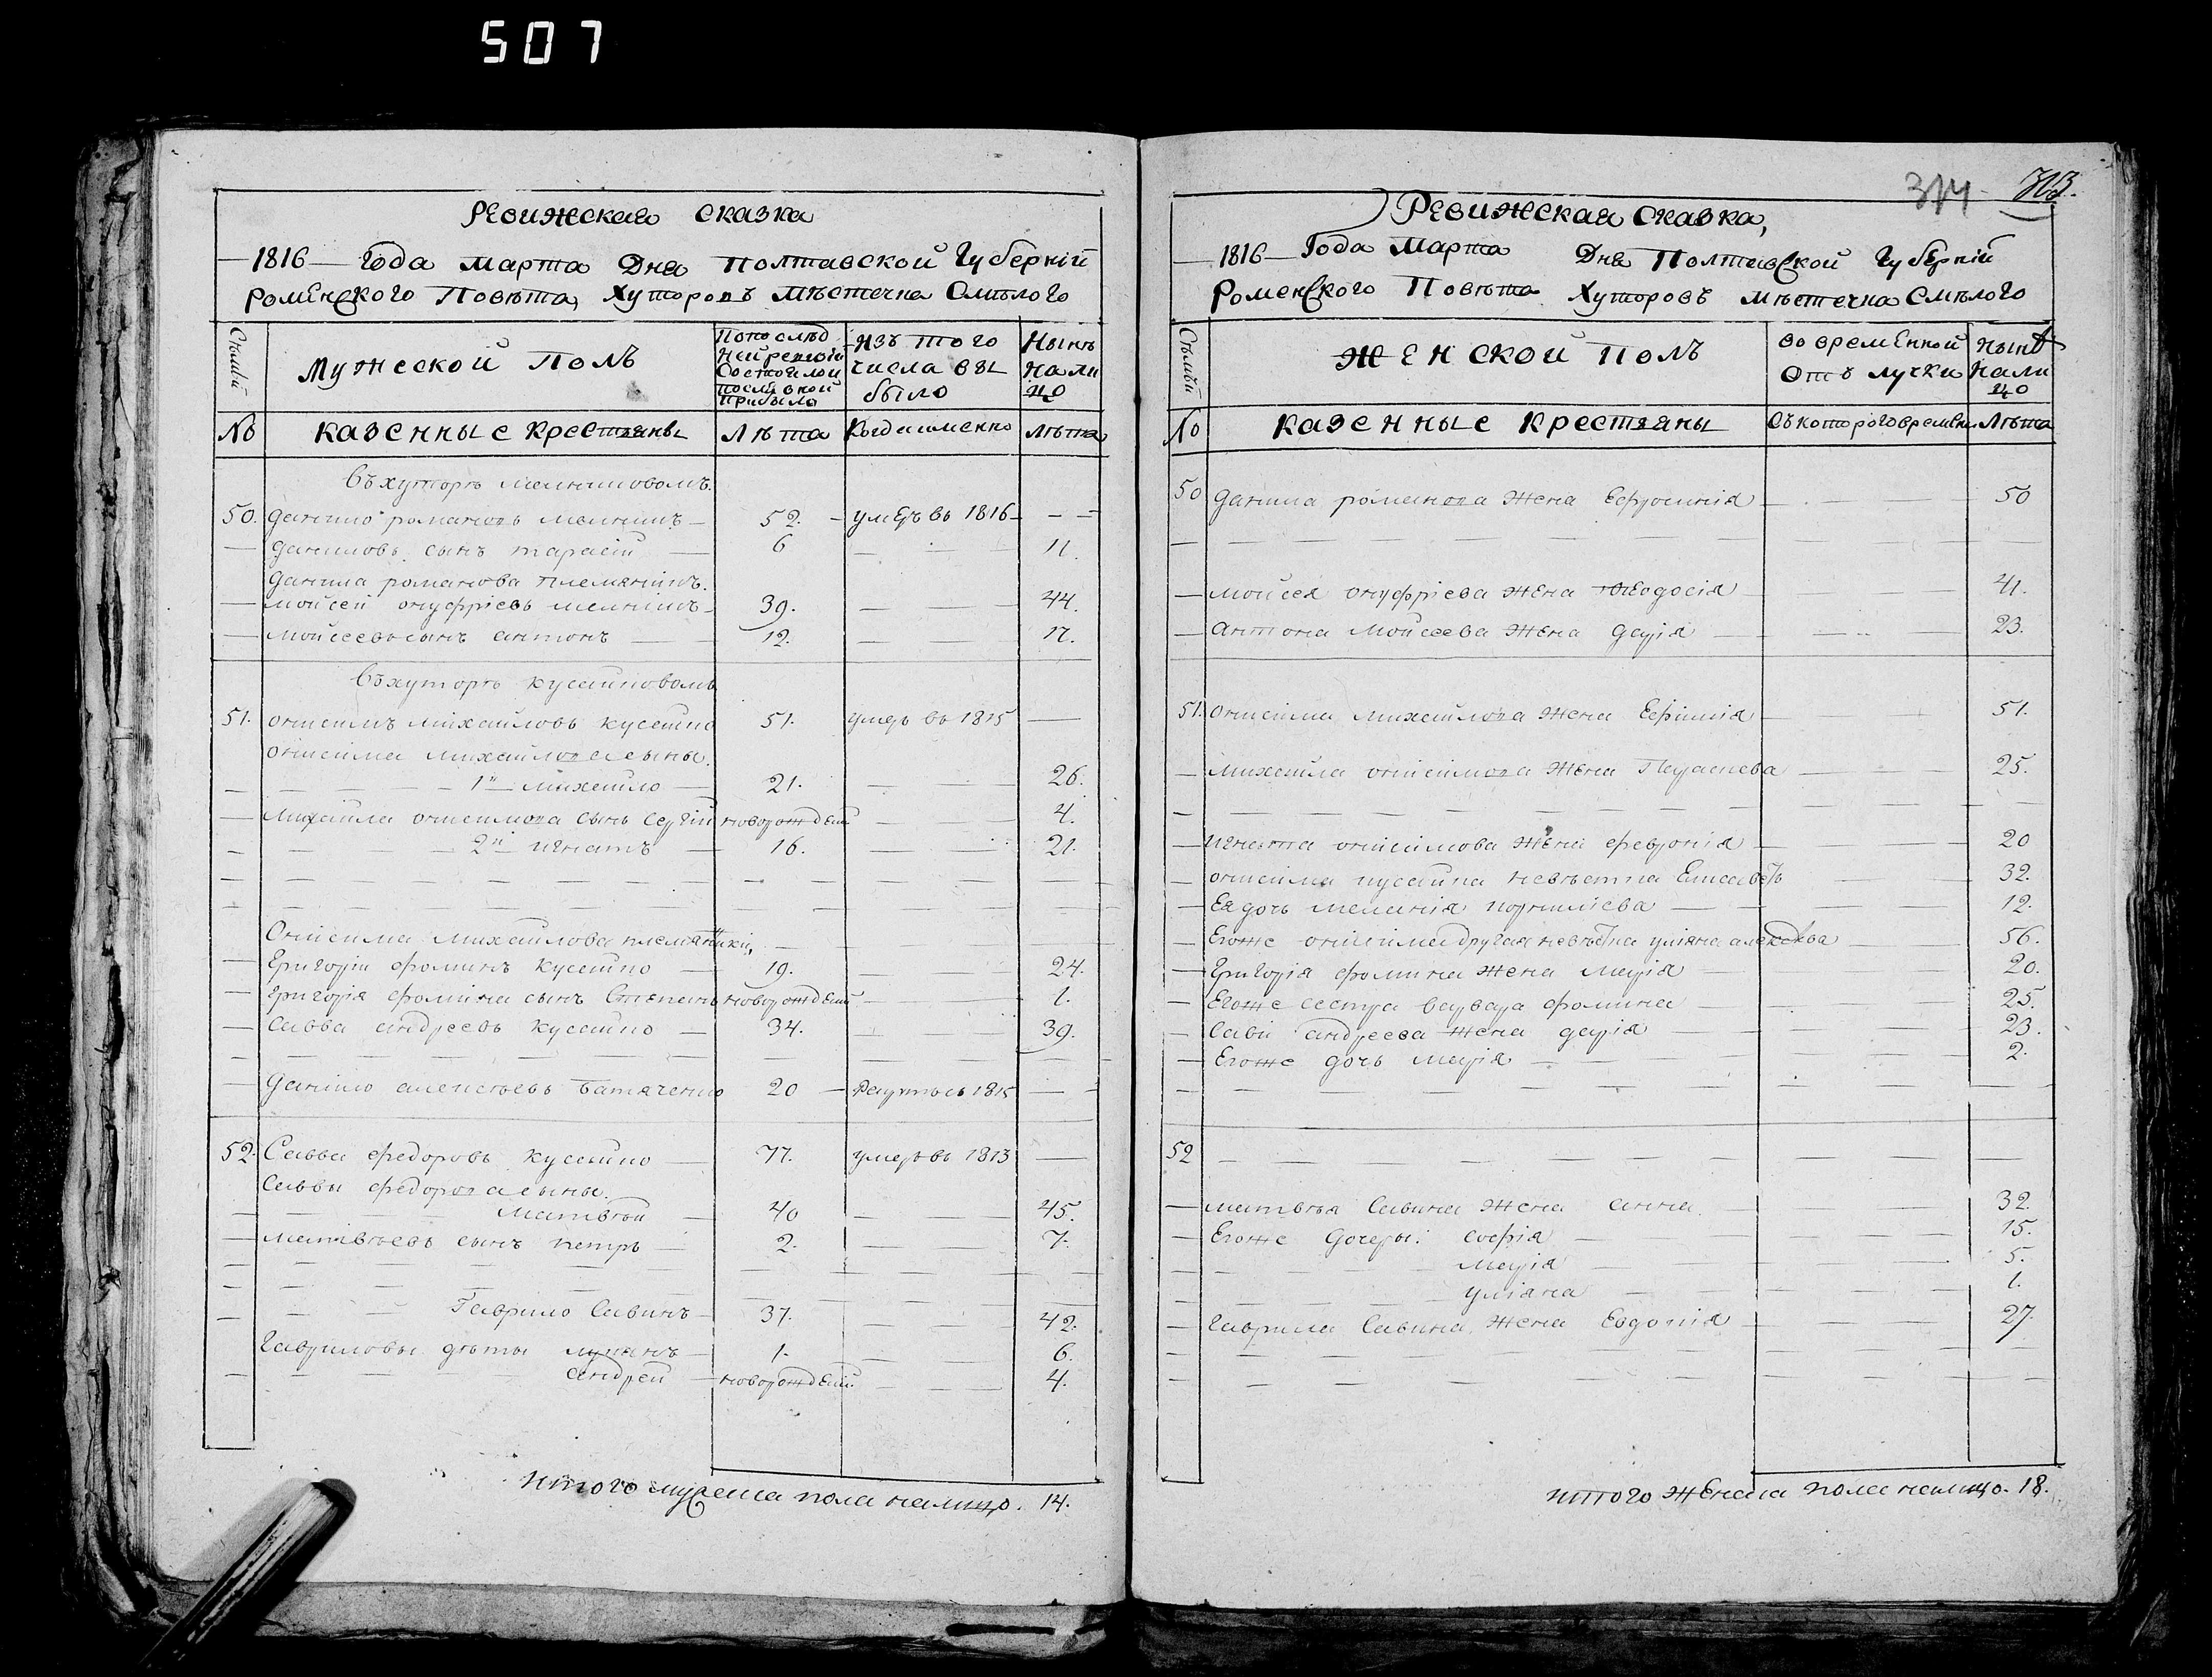 507
Ревижская сказка
1816 Года Марта Дня Полтавской Губерніи
Роменского Повѣта, Хуторовъ Мѣстечка Смѣлого
Мужеской Полъ
Изъ того числа выбыло
Нынѣ на лицо
№ казенные Крестьяны Лѣта Когда именно Лѣта
Въ хуторѣ
50. Данило романовъ 52. умеръ въ 1816
Даниловъ сынъ тарасій 6 11.
Данила романова племянникъ.
Мойсей онуфріевъ 39. 44.
Мойсеевъ сынъ антонъ 12. 17.
Въ хуторѣ
51. онисимъ михайловъ 51. умеръ въ 1815
онисима михайлова сыны.
1й михайло 21. 26.
михайла онисимова сынъ сергій новорожденй 4.
2й игнатъ 16. 21.
Онисима михайлова племянники,
Григорій фоминъ 19. 24.
Григорія фомина сынъ Степанъ новорожденй 1.
Савва андреевъ 34. 39.
Данило алексѣевъ 20 1815
52. Савва федоровъ 77. умеръ въ 1813
Саввы федорова сыны.
матвѣй 40 45.
матвѣевъ сынъ петръ 2. 7.
Гаврило Савинъ 37. 42.
Гавриловы дѣты 1. 6.
андрей новорожденй. 4.
Итого пола налицо. 14.
314 703.
Ревижская Сказка,
1816 Года Марта Дня Полтавской Губерніи
Роменского Повѣта Хуторовъ Мѣстечка Смѣлого
Женской Полъ
во временной отълучки
нынѣ на лицо
№ казенные Крестьяны Съ которого времены Лѣта
50 Данила романова жена Ефросинія 50
Мойсея онуфріева жена Феодосія 41.
Антона Мойсеева жена дарія 23.
51. онисима михайлова жена Ефимія 51.
Михайла онисимова жена 25.
Игната онисимова жена февронія 20
онисима невѣстка Елисаветъ 32.
Ея дочь меланія корниліева 12.
Егоже онисима другая невѣстка уліяна 56.
Григорія фомина жена марія 20.
Егоже сестра варвара фомина 25.
Савы андреева жена дарія 23.
Егоже дочь марія 2.
52
матвѣя Савина жена анна. 32.
Егоже дочеры: софія 15.
марія 5.
уліяна 1.
Гаврила Савина жена Евдокія 27.
Итого пола налицо. 18.